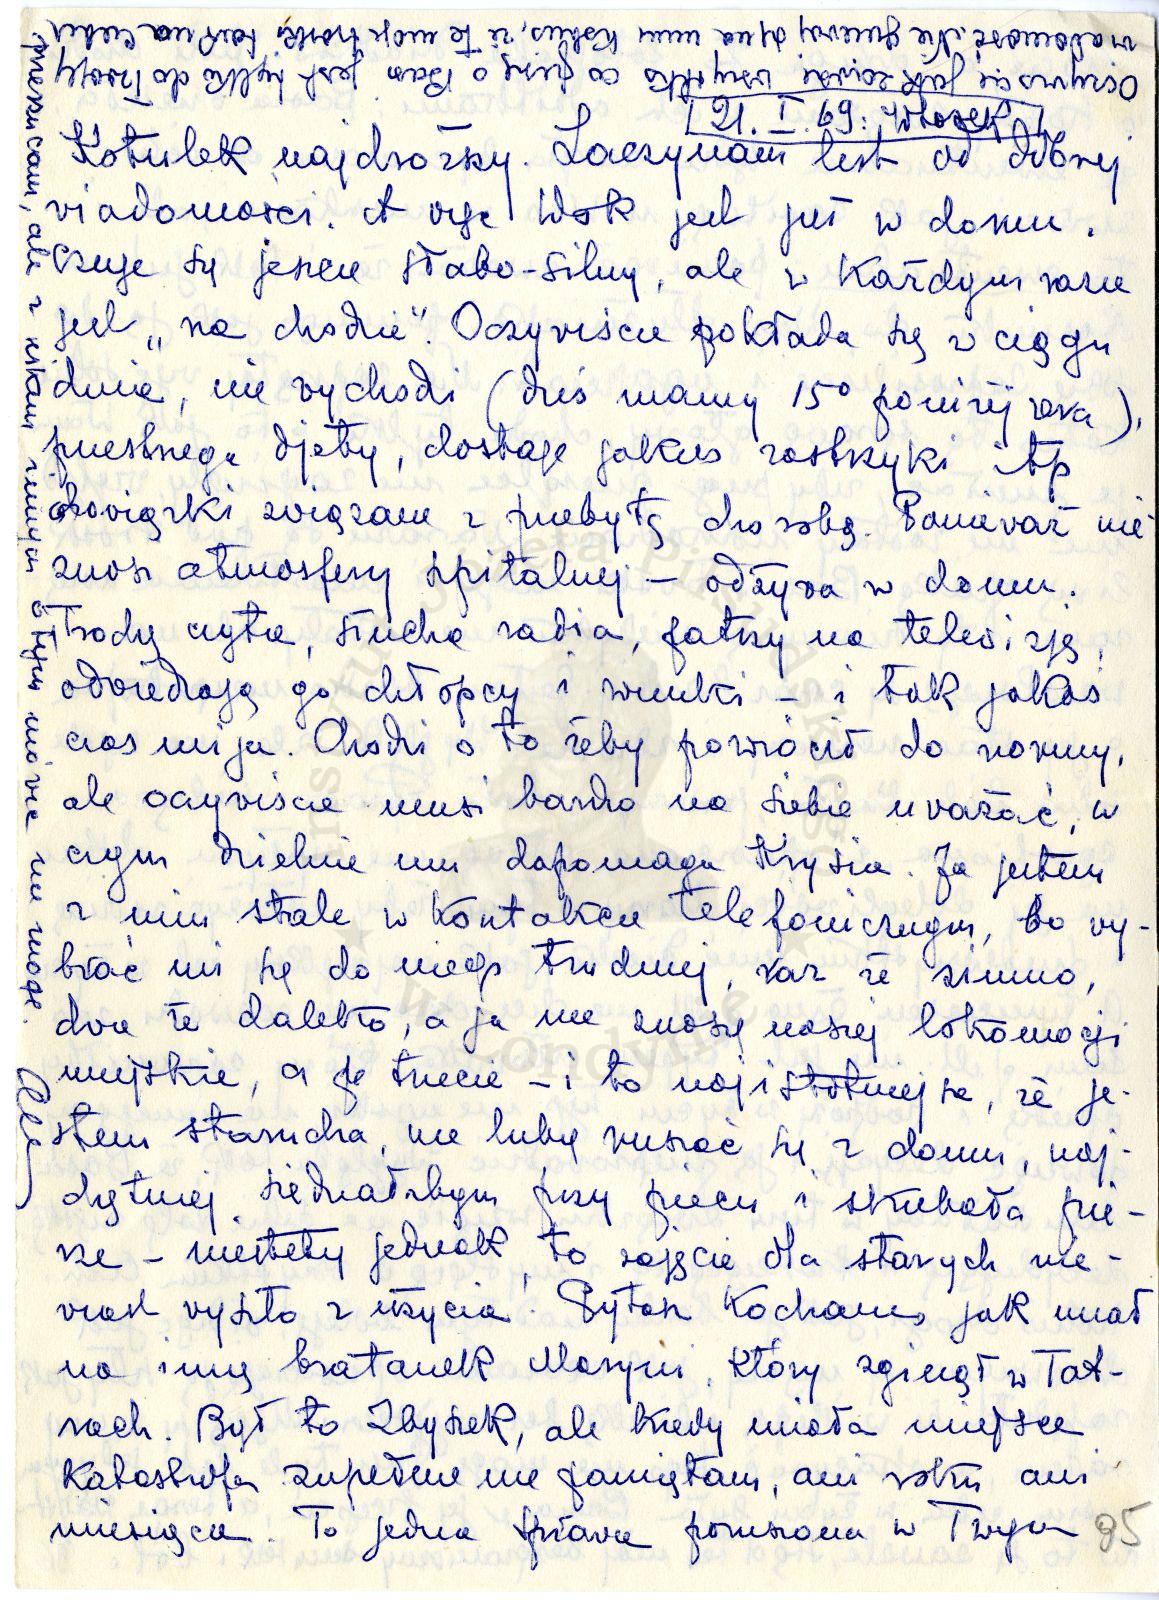 21. I. 69. Wtorek
Kotulek najdroższy. Zaczynam list od dobrej
wiadomości. A więc Wok jest już w domu.
Czuje się jeszcze słabo-silny, ale w każdym razie
jest „na chodzie". Oczywiście pokłada się w ciągu
dnia, nie wychodzi (dziś mamy 15° poniżej zera),
przestrzega djety, dostaje jakieś zastrzyki itp
obowiązki związane z przebytą chorobą. Ponieważ nie
znosi atmosfery szpitalnej – odżywa w domu.
Trochę czyta, słucha radia, patrzy na telewizję,
odwiedzają go chłopcy i wnuki – i tak jakoś
czas mija. Chodzi o to żeby powrócił do normy,
ale oczywiście musi bardzo na siebie uważać, w
czym dzielnie mu dopomaga Krysia. Ja jestem
z nim stale w kontakcie telefonicznym, bo wy-
brać mi się do niego trudniej, raz że zimno,
dwa że daleko, a ja nie znoszę naszej lokomocji
miejskiej, a po trzecie – i to najistotniejsze, że je-
stem starucha, nie lubię ruszać się z domu, naj-
chętniej siedziałabym przy piecu i skubała pie-
rze – niestety jednak to zajęcie dla starych nie-
wiast wyszło z użycia! Pytasz Kochanie, jak miał
na imię bratanek Maryni, który zginął w Tat-
rach. Był to Zbyszek, ale kiedy miała miejsce
katastrofa zupełnie nie pamiętam, ani roku ani
miesiąca. To jedna sprawa poruszona w Twym
85
Oczywiście jak zawsze wszystko co piszę o jest tylko do Twojej
wiadomości. Nie gniewaj się na mnie że te moje troski tak na Ciebie
przerzucam, ale z nikim innym o tym mówić nie mogę.